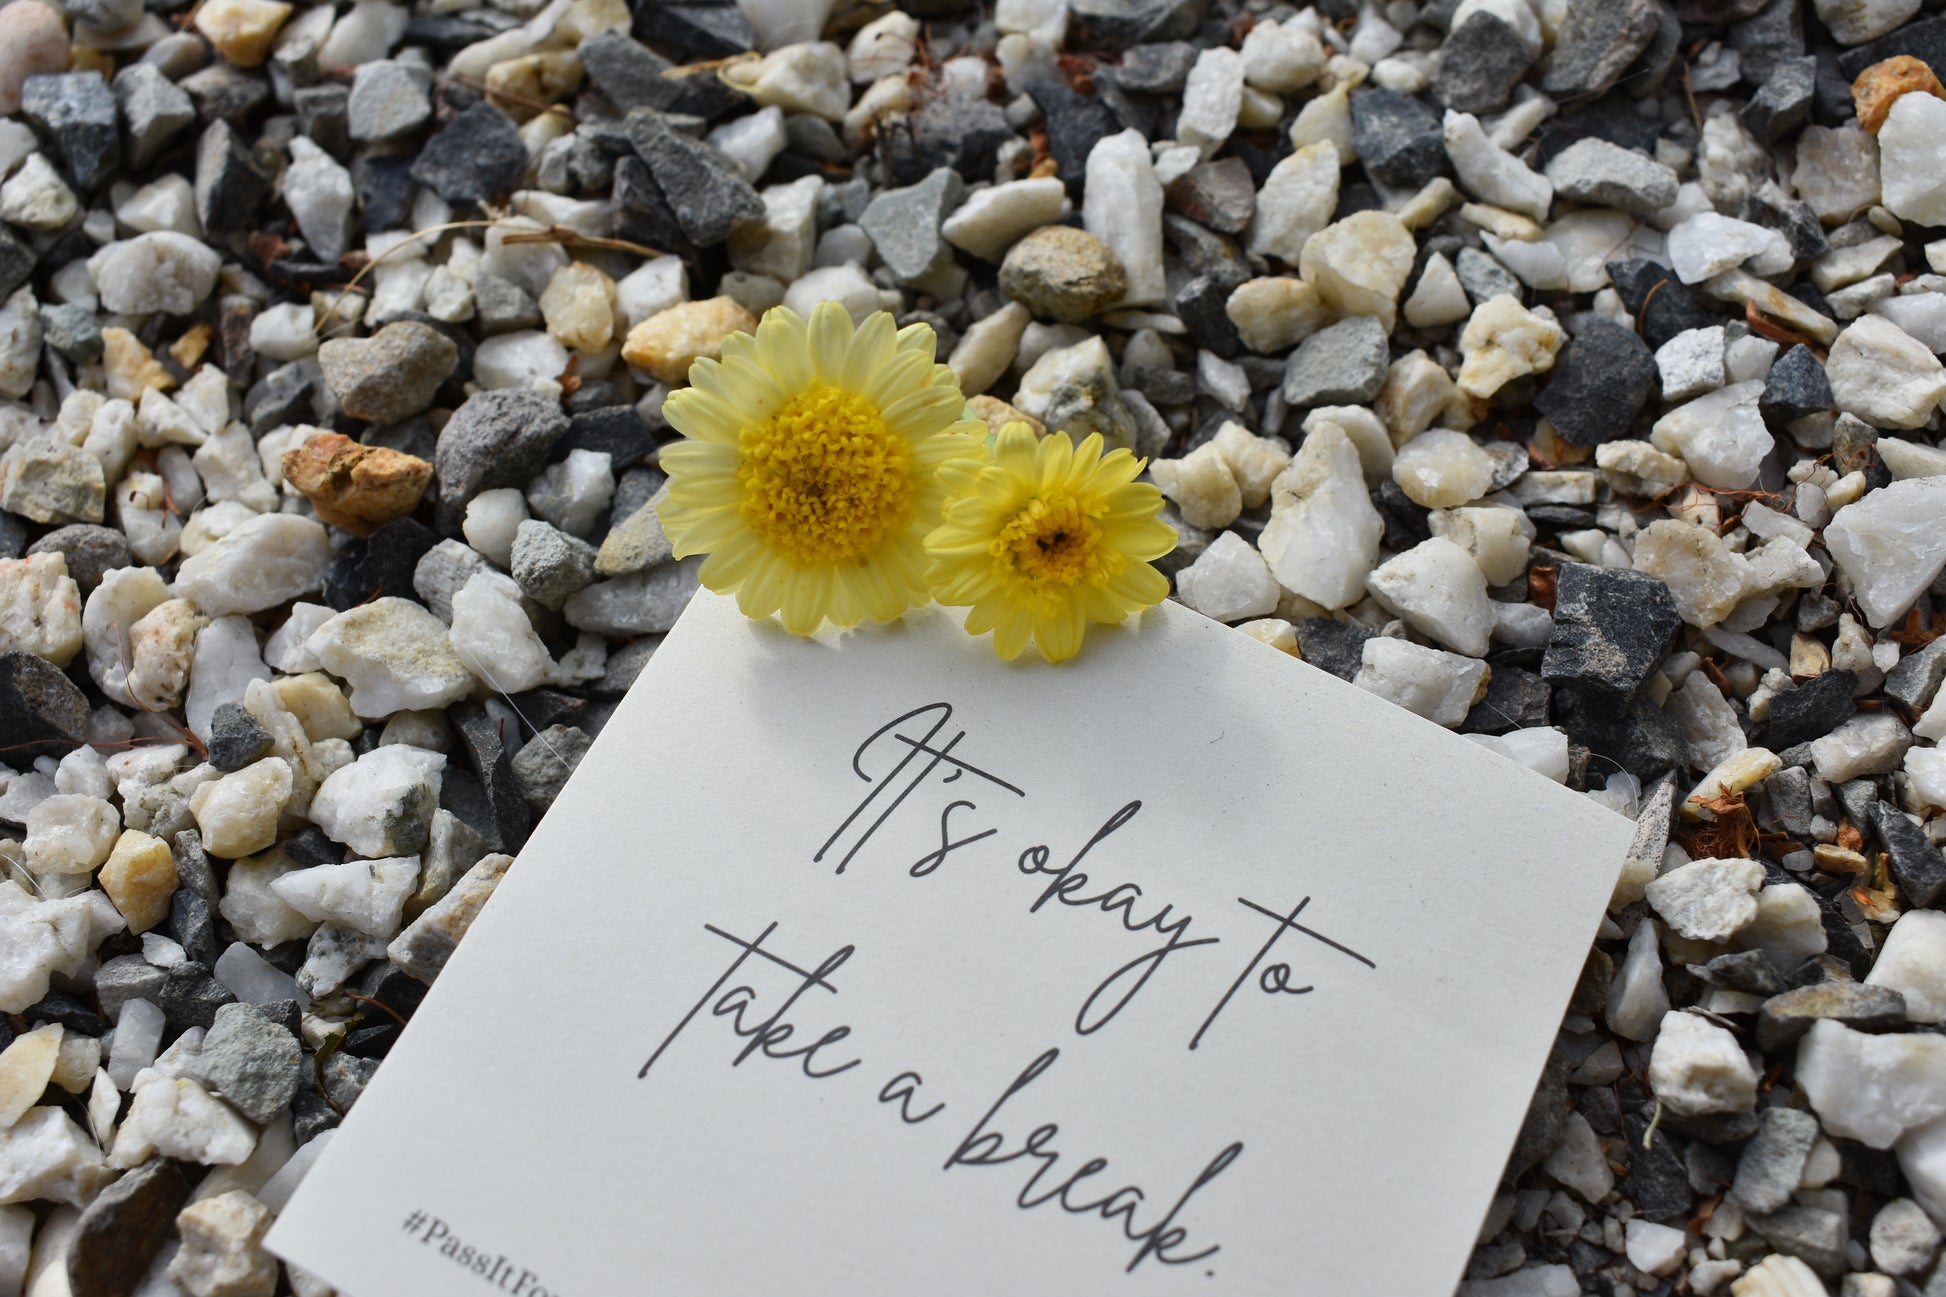 It's okay to
take a break.
#PassItFo